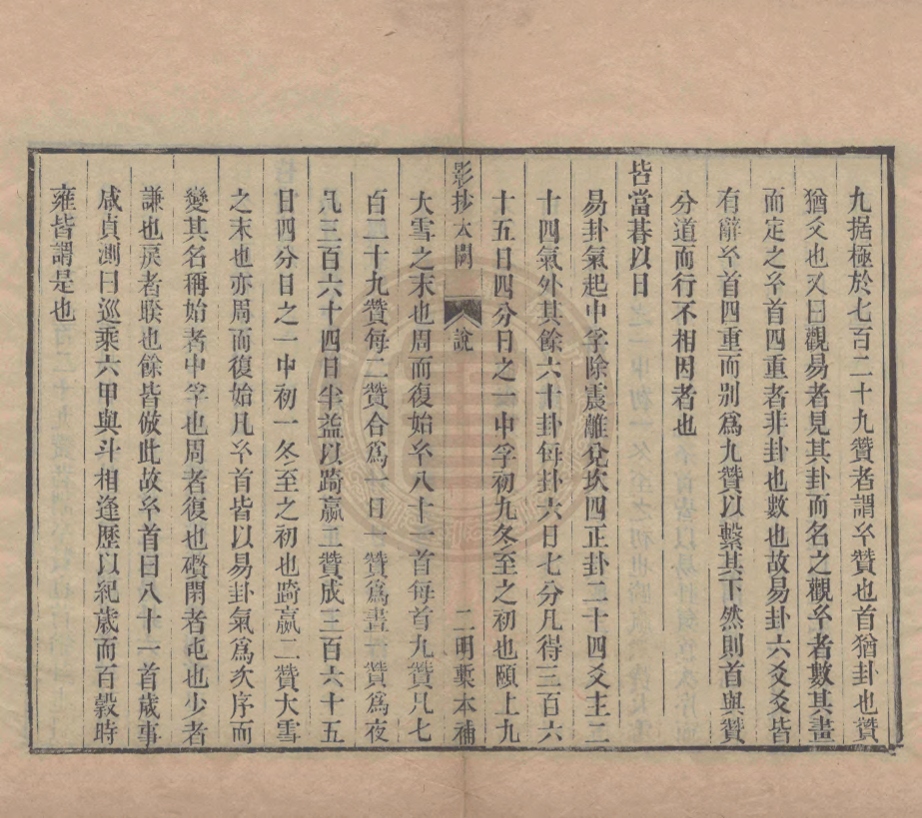 九据極於七百二十九贊者謂𤣥贊也首猶卦也贊
猶爻也又曰觀易者見其卦而名之觀𤣥者數其畫
而定之𤣥首四重者非卦也數也故易卦六爻爻皆
有辭𤣥首四重而别爲九贊以繫其下然則首與贊
分道而行不相因者也
皆當朞以日
易卦氣起中孚除震離兌坎四正卦二十四爻主二
十四氣外其餘六十卦每卦六日七分凡得三百六
十五日四分日之一中孚初九冬至之初也頤上九
影抄太𤣥 說 二明藁本補
大雪之末也周而復始𤣥八十一首每首九贊凡七
百二十九贊每二贊合爲一日一贊爲晝一贊爲夜
凡三百六十四日半益以踦嬴二贊成三百六十五
日四分日之一中初一冬至之初也踦嬴二贊大雪
之末也亦周而復始凡𤣥首皆以易卦氣爲次序而
變其名稱始者中孚也周者復也礥閑者屯也少者
謙也戾者睽也餘皆倣此故𤣥首曰八十一首歲事
咸貞測曰巡乘六甲與斗相逢歷以紀歲而百穀時
雍皆謂是也